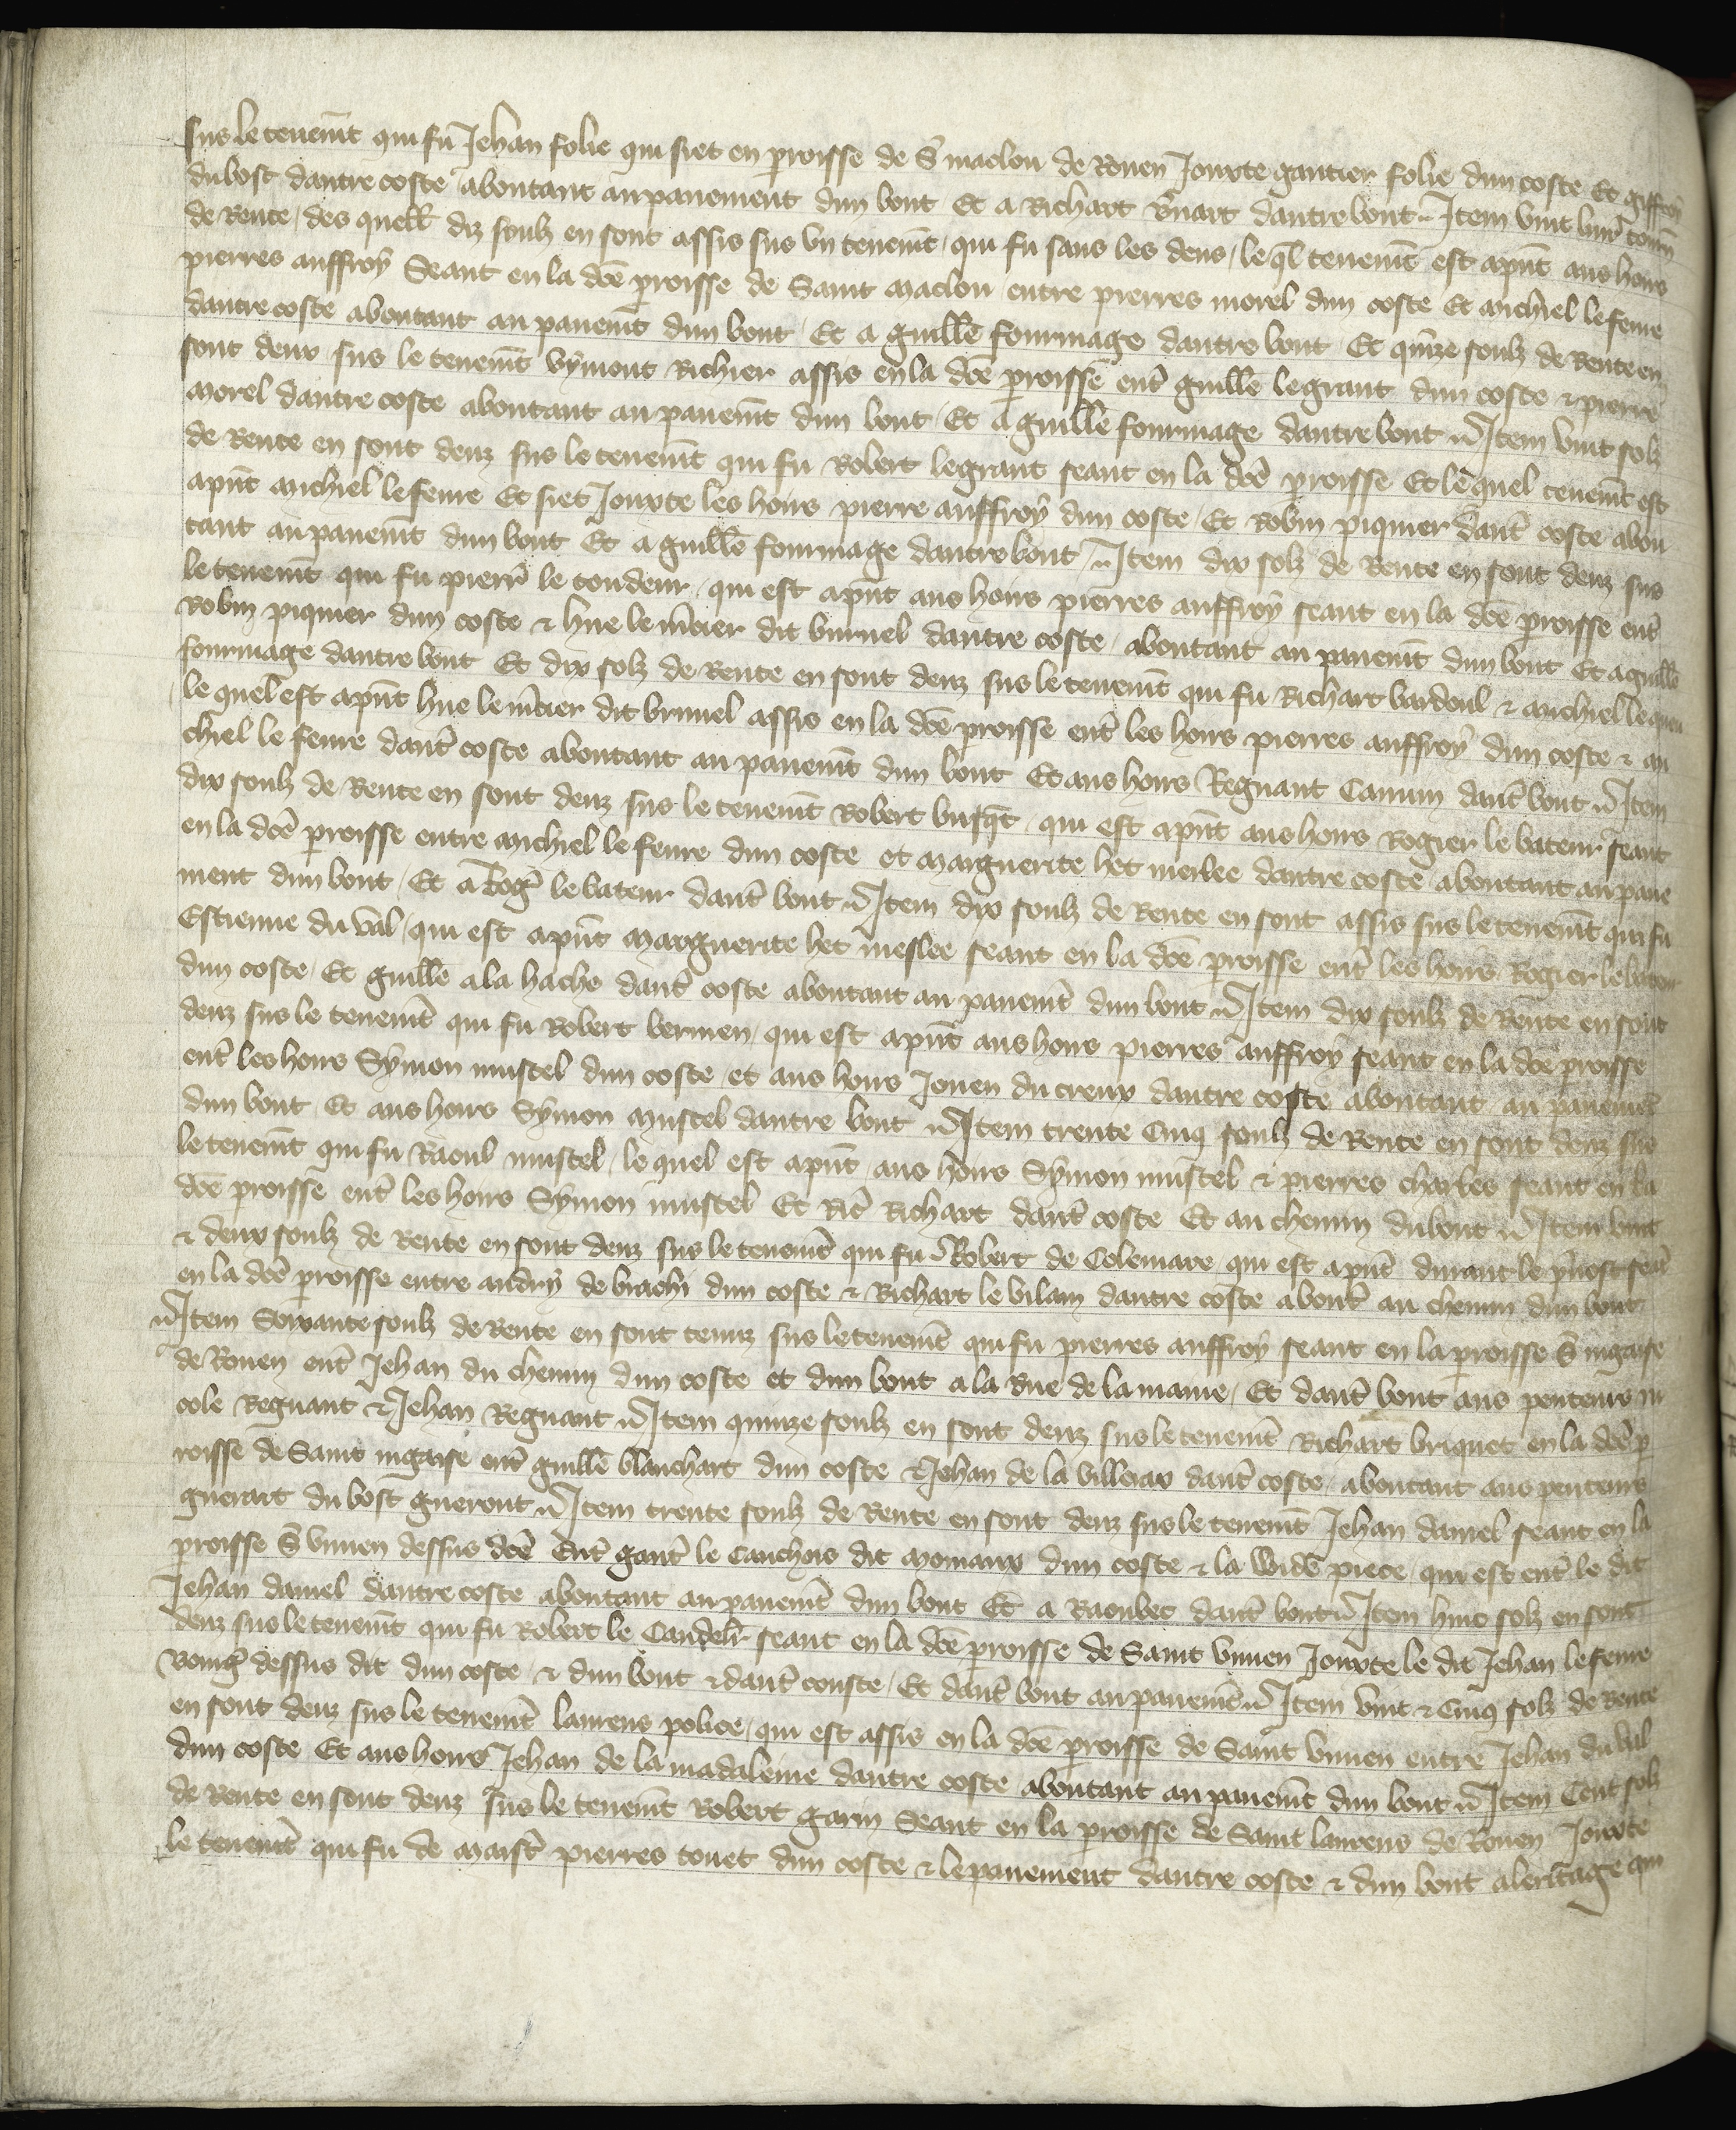 sus le tenemt qui fu Jehan folie qui siet en proisse de St maclou de Rouen Jouxte gautier folie dun coste Et giffroy
du bost dautre coste aboutant au pauement dun bout Et a Richart dautre bout Item vint liur tourn
de Rente des quell diz soulz en sont assis sus vn tenemt qui fu sans les dens le ql tenemt est apnt aus hours
pierres auffroy Seant en la dce proisse de Saint maclou entre pierres morel dun coste Et michiel le feure
dautre coste aboutant au pauemt dun bout Et a guille fourmage dautre bout Et qinze soulz de Rente en
sont deux sus le tenemt vymont Richier assis en la dce proisse entr guille le grant dun coste & pierre
morel dautre coste aboutant au pauemt dun bout Et a guille fourmage dautre bout Item vint solz
de Rente en sont deuz sus le tenemt qui fu Robert le grant seant en la dce proisse Et le quel tenemt est
apnt michiel le feure Et siet Jouxte les hours pierre auffroy dun coste Et Robin piquier dautr coste abou
tant au pauemt dun bout Et a guille fourmage dautre bout Item dix solz de Rente en sont deuz sus
le tenemt qui fu pierr le tondeur qui est apnt aus hours pierres auffroy seant en la dce proisse entr
Robin piquier dun coste & hue le mcier dit buruel dautre coste aboutant au pauemt dun bout Et a guille
fourmage dautre bout Et dix solz de Rente en sont deuz sus le tenemt qui fu Richart bardoul & michiel le
le quel est apnt hue le mcier dit bruuel assis en la dce proisse entr les hours pierres auffroy dun coste & mi
chiel le feure dautr coste aboutant au pauemt dun bout Et aus hours Regnaut Camin dautr bout Item
dix soulz de Rente en sont deuz sus le tenemt Robert busqt qui est apnt aus hours Rogier le bateur seant
en la dce proisse entre michiel le feure dun coste et marguerite het merlee dautre coste aboutant au paue
ment dun bout Et a Rogr le bateur dautr bout Item dix soulz de Rente en sont assis sus le tenemt qui fu
Estienne du val qui est apnt marguerite het meslee seant en la dce proisse entr les hours Rogier le bateur
dun coste Et guille a la hache dautr coste aboutant au pauemt dun bout Item dix soulz de Rente en sont
deuz sus le tenemt qui fu Robert bermen qui est apnt aus hours pierres auffroy seant en la dce proisse
entr les hours Symon mustel dun coste et aus hours Jouen du creux dautre coste aboutant au pauemt
dun bout Et aus hours Symon mustel dautre bout Item trente Cinq soulz de Rente en sont deuz sus
le tenemt qui fu Raoul mustel le quel est apnt aus hours Symon mustel & pierres charles seant en la
dce proisse entr les hours Symon mustel Et Richart dautr coste Et au chemin du bout Item vint
& deux soulz de Rente en sont deuz sus le tenemt qui fu Robert de Colemare qui est apnt durant le puost seat
en la dce proisse entre andry de biachi dun coste & Richart le vilain dautre coste about au chemin dun bout
Item Soixante soulz de Rente en sont tenuz sus le tenemt qui fu pierres auffroy seant en la proisse St nigaise
de Rouen entr Jehan du chemin dun coste et dun bout a la Rue de la maine Et dautr bout aus penteurs ni
cole Regnaut & Jehan Regnaut Item quinze soulz en sont deuz sus le tenemt Richart briquet en la dce p
roisse de Saint nigaise entr guille blanchart dun coste & Jehan de la villeray dautr coste aboutant aus penteurs
guerart du bost gueront Item trente soulz de Rente en sont deuz sus le tenemt Jehan daniel seant en la
proisse St viuien dessus dce Entr gautr le Cauchois dit momaux dun coste & la wide piece qui est entr le dit
Jehan daniel dautre coste aboutant au pauemt dun bout Et a Raoulet dautr bout Item huit solz en sont
deuz sus le tenemt qui fu Robert le Candelr seant en la dce proisse de Saint viuien Jouxte le dit Jehan le feure
dessus dit dun coste & dun bout & dautr couste Et dautr bout au pauemt Item vint & Cinq solz de Rente
en sont deuz sus le tenemt laurens police qui est assis en la dce proisse de Saint viuien entre Jehan du val
dun coste Et aus hours Jehan de la madaleine dautre coste aboutant au pauemt dun bout Item Cent solz
de Rente en sont deuz sus le tenemt Robert garin Seant en la proisse de Saint laurens de Rouen Jouxte
le tenemt qui fu de maistr pierres touet dun coste & le pauement dautre coste & dun bout a leritage qui